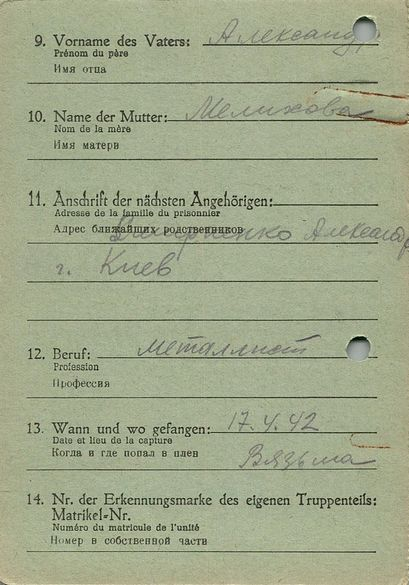 9. Vorname des Vaters: Александр
Prénom du père
Имя отца
10. Name der Mutter: Мелихова
Nom de la mère
Имя матери
11. Anschrift der nächsten Angehörigen:
Adresse de la famille du prisonnier
Адрес ближайших родственников
Александр
г. Киев
12. Beruf: металлист
Profession
Профессия
13. Wann und wo gefangen: 17.4.42
Date et lieu de la capture
Когда и где попал в плен Вязьма
14. Nr. der Erkennungsmarke des eigenen Truppenteils:
Matrikel-Nr.
Numéro du matricule de l'unité
Номер в собственной части